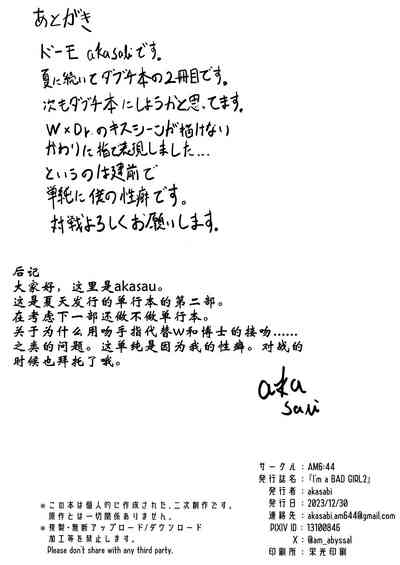 あとがき
ドーモ akasabiです。
夏に続いてダブチ本の2冊目です。
次もダブチ本にしようかと思ってます。
W×Dr.のキスシーンが描けない
かわりに指で表現しました…
というのは建前で
単純に僕の性癖です。
対戦よろしくお願いします。
后记
大家好，这里是akasau。
这是夏天发行的单行本的第二部。
在考虑下一部还做不做单行本。
关于为什么用吻手指代替W和博士的接吻……
之类的问题。这单纯是因为我的性癖。对战的
时候也拜托了哦。
aka
sabi
サークル：AM6:44
発行誌名：『I'm a BAD GIRL2』
発行者：akasabi
発行日：2023/12/30
連絡先：akasabi.am644@gmail.com
PIXIV ID：13100846
X：@am_abyssal
印刷所：栄光印刷
※この本は個人的に作成された、二次創作です。
原作とは一切関係ありません。
※複製・無断アップロード/ダウンロード
加工等を禁止します。
Please don't share with any third party.